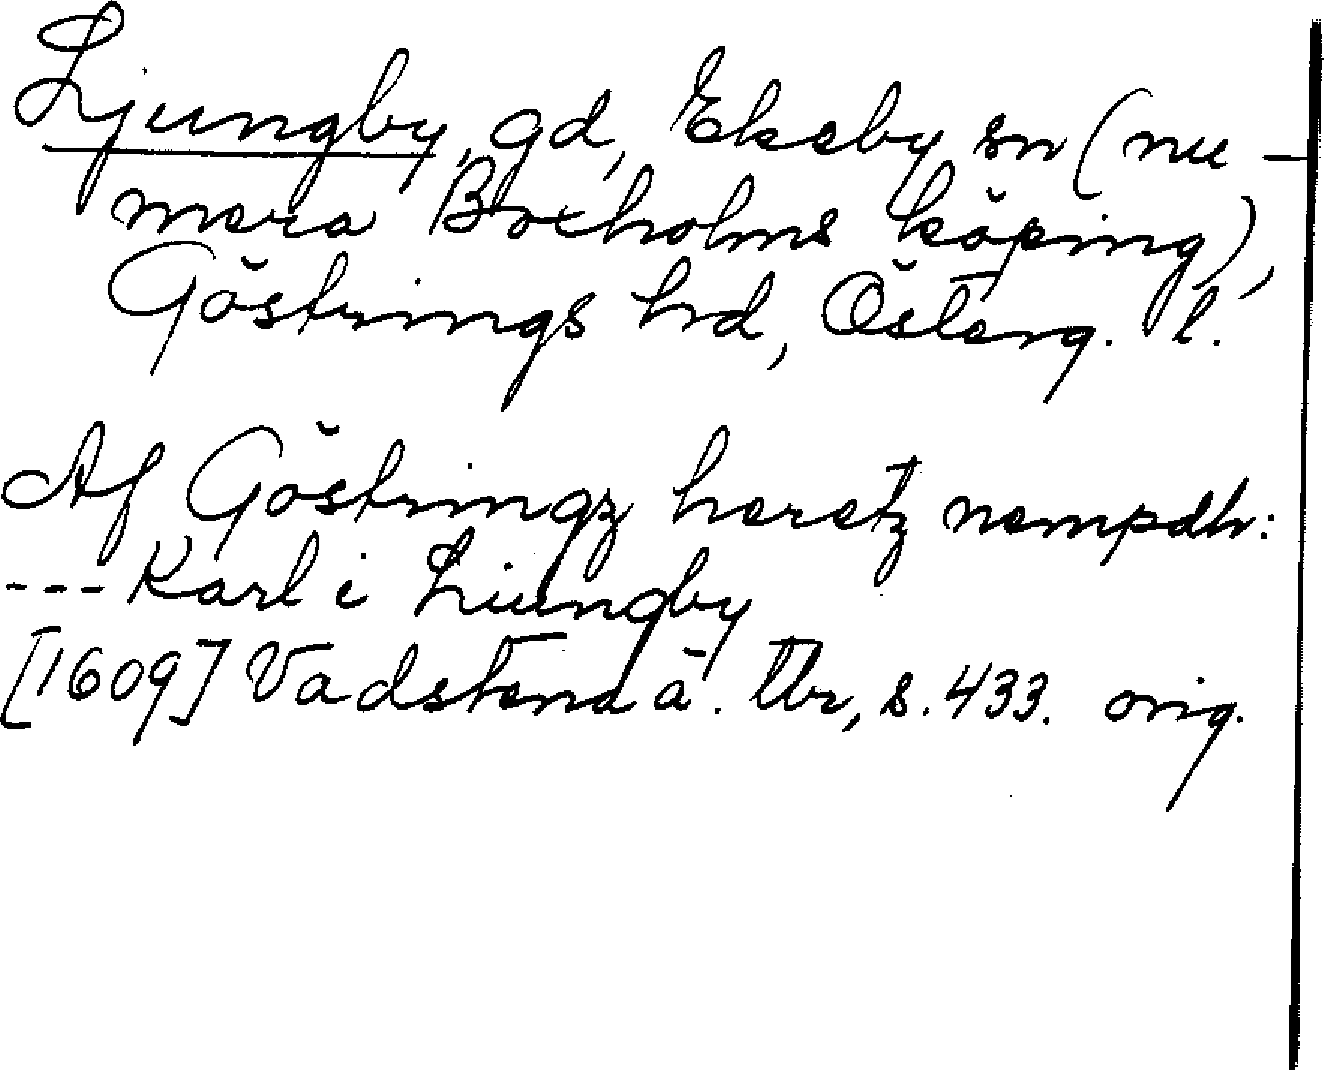 Ljungby, gd, Ekeby sn (nu-
mera Boxholms köping),
Göstrings hrd, Österg. l.
Af Göstringz heretz nempdh:
--- Karl i Liungby
[1609] Vadstena ä. tbr, s. 433. orig.